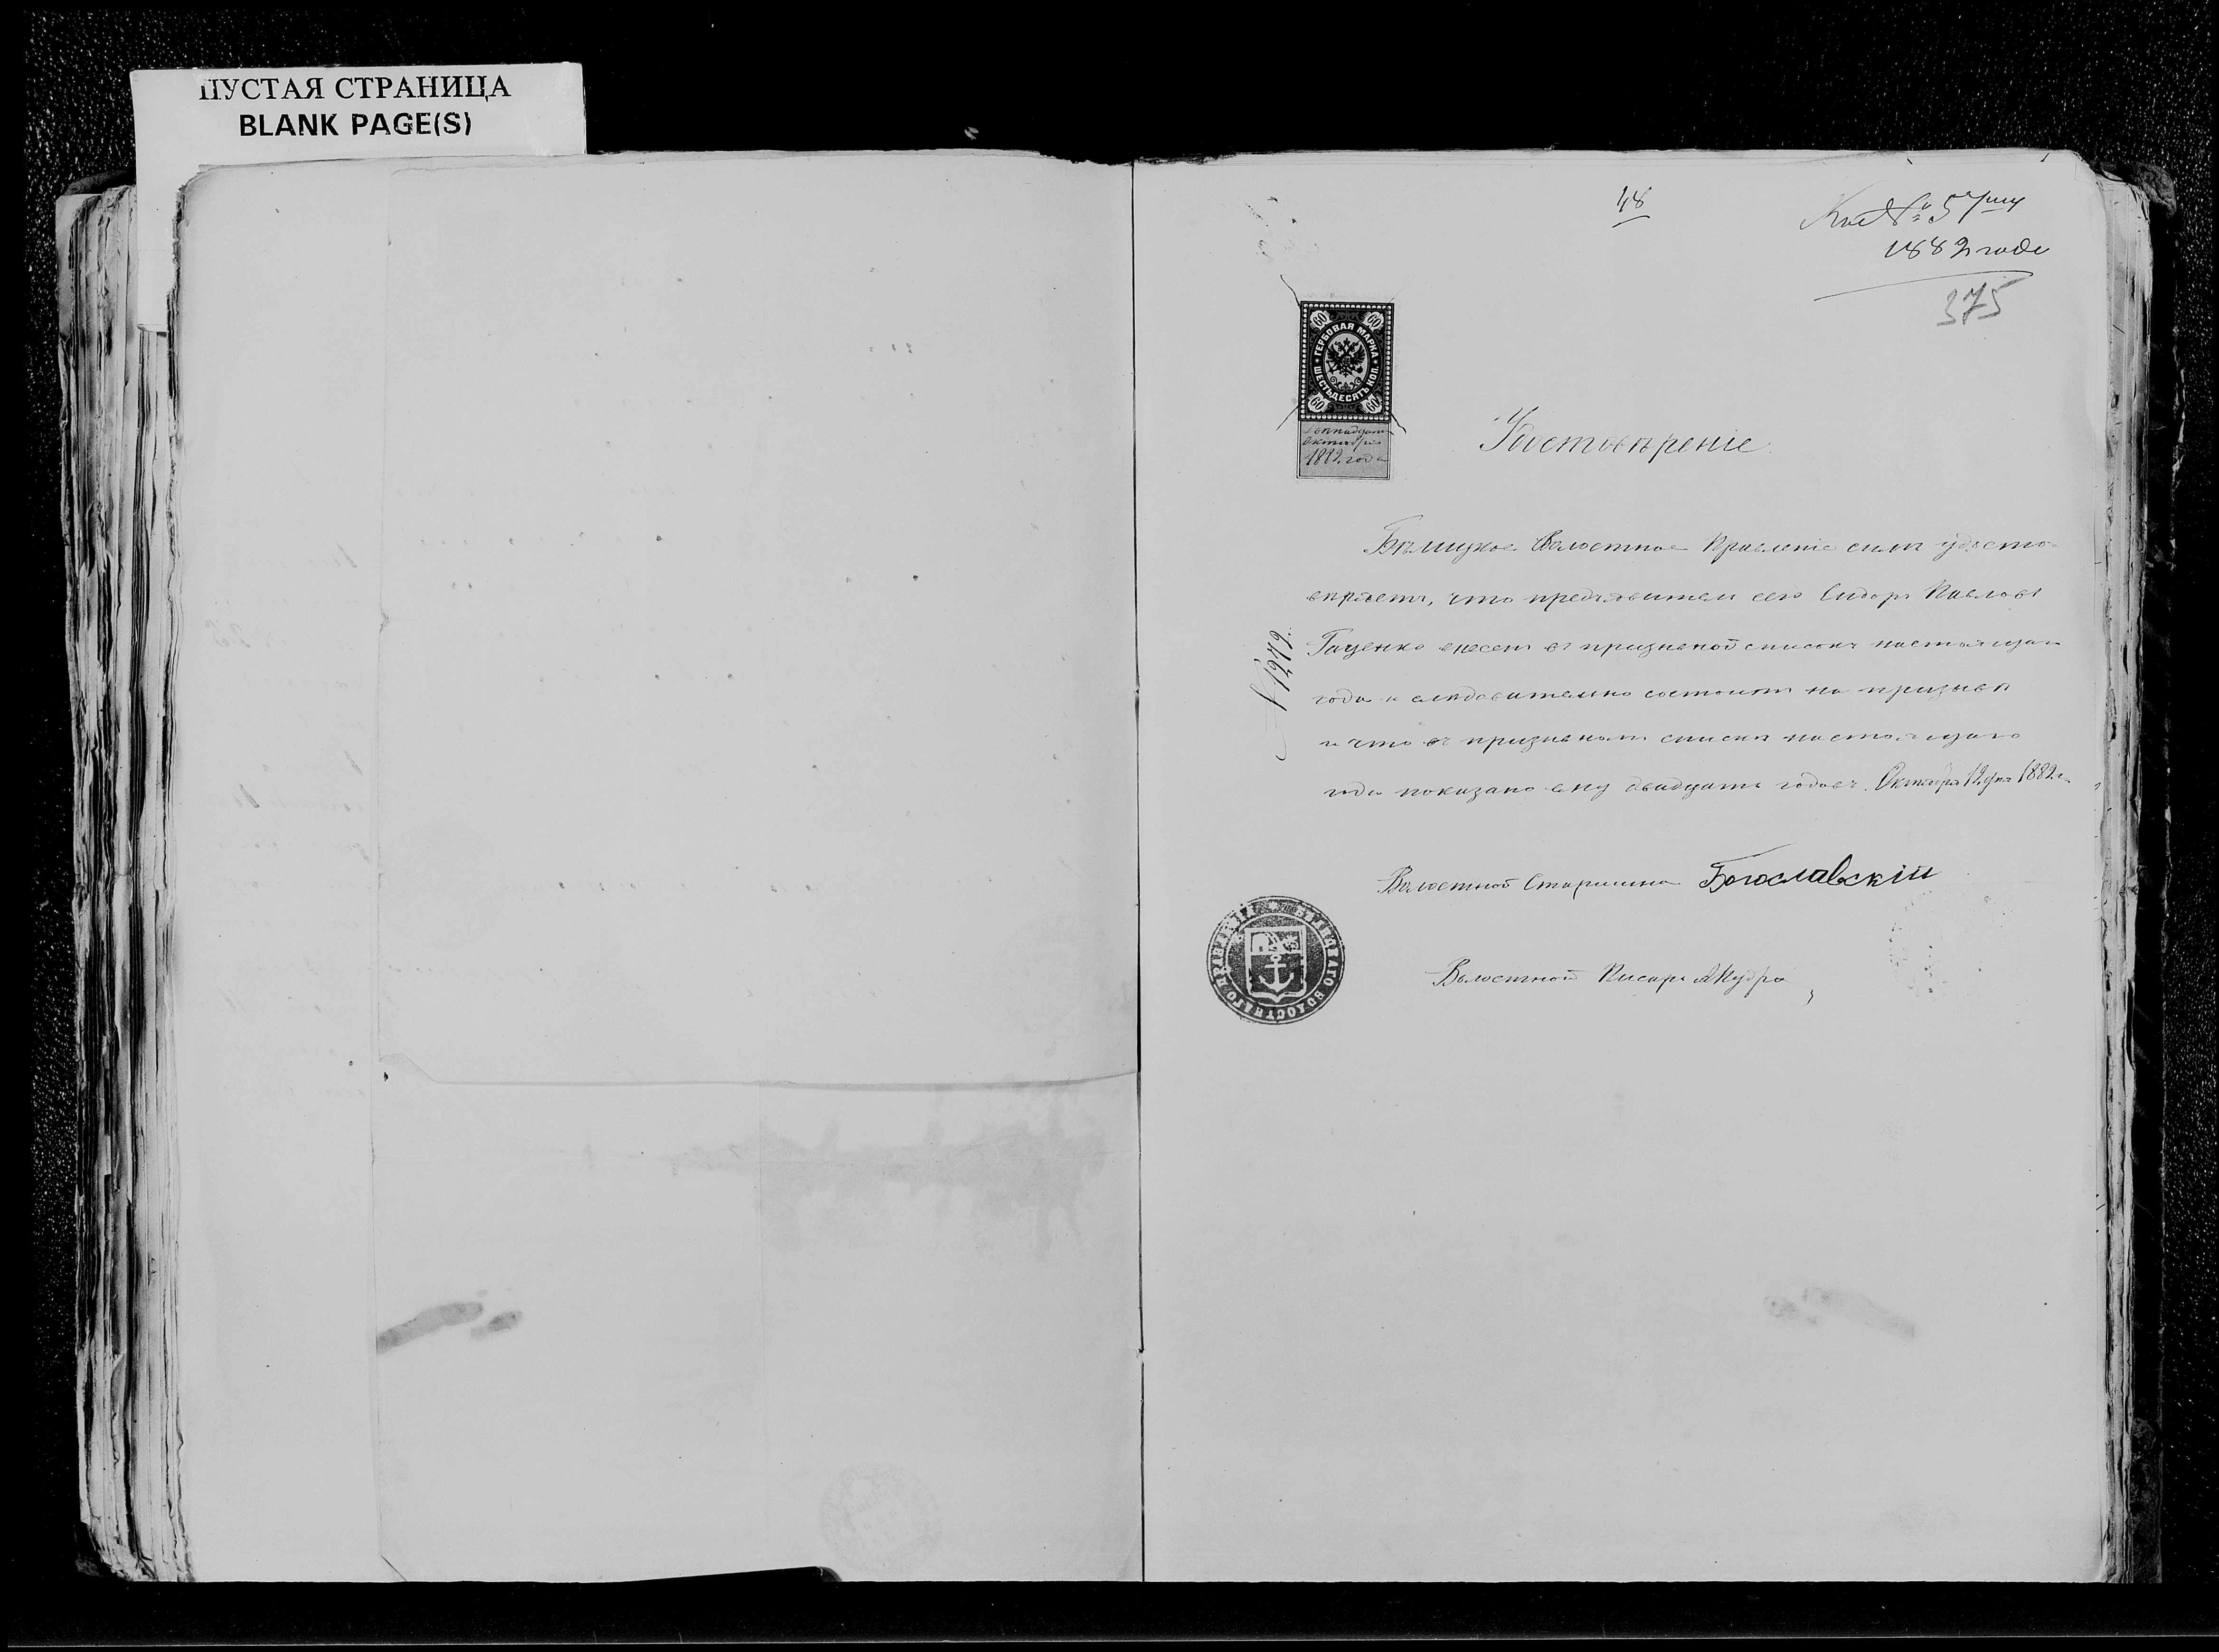 ПУСТАЯ СТРАНИЦА
BLANK PAGE(S)
48
Къ № 57му
1882 года
375
60 60
ГЕРБОВАЯ МАРКА
ШЕСТЬДЕСЯТЪ КОП.
60 60
Октября
1882 года
Удостовѣреніе
Бѣлицкое Волостное Правленіе симъ удосто-
вѣряетъ, что предъявитель сего Сидоръ Павловъ
Гаценко внесенъ въ призывной списокъ настоящаго
года и слѣдовательно состоитъ на призывѣ
и что въ призывномъ спискѣ настоящаго
года показано ему двадцать годовъ. Октября 12 дня 1882 г.
№ 1272.
Волостной Старшина Богославскій
Волостной Писарь Кудра
БѢЛИЦКАГО ВОЛОСТНАГО ПРАВЛЕНІЯ